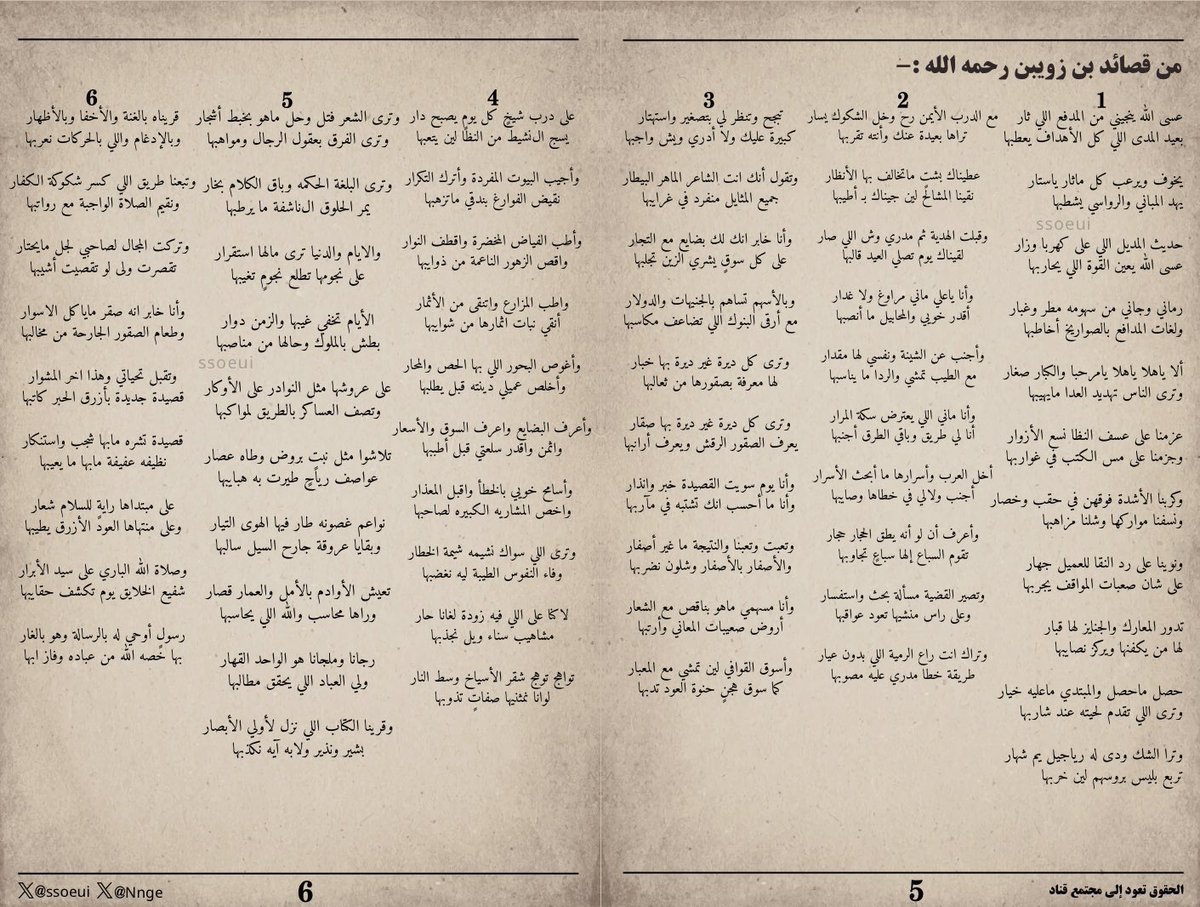 من قصائد بن زويبن رحمه الله :-
1
عسى الله ينجيني من المدفع اللي ثار
بعيد المدى اللي كل الأهداف يعطبها
يخوف ويرعب كل ماثار ياستار
يهد المباني والرواسي يشطبها
ssoeui
حديث المديل اللي على كهربا وزار
عسى الله يعين القوة اللي يحاربها
رماني وجاني من سهومه مطر وغبار
ولغات المدافع بالصواريخ أخاطبها
ألا ياهلا ياهلا يامرحبا والكبار صغار
وترى الناس تهديد العدا مايهيبها
عزمنا على عسف النظا نسع الأزوار
وجزمنا على مس الكتب في غواربها
وكربنا الأشدة فوقهن في حقب وخصار
ونسفنا مواركها وشلنا مزاهبها
ونوينا على رد النقا للعميل جهار
على شان صعبات المواقف يجربها
تدور المعارك والجنايز لها قبار
لها من يكفنها ويركز نصايبها
حصل ماحصل والمبتدي ماعليه خيار
وترى اللي تقدم لحيته عند شاربها
وترا الشك ودى له رياجيل يم شهار
تربع بليس بروسهم لين خربها
2
مع الدرب الأيمن رح وخل الشكوك يسار
تراها بعيدة عنك وأنته تقربها
عطيناك بشت ماتخالف بها الأنظار
نقينا المشالح لين جيناك بـ أطيبها
وقبلت الهدية ثم مدري وش اللي صار
لقيناك يوم تصلي العيد قالبها
وأنا ياعلي ماني مراوغ ولا غدار
أقدر خويي والمحابيل ما أنصبها
وأجنب عن الشينة ونفسي لها مقدار
مع الطيب تمشي والردا ما يناسبها
وأنا ماني اللي يعترض سكة المرار
أنا لي طريق وباقي الطرق أجنبها
أخل العرب وأسرارها ما أبحث الأسرار
أجنب ولالي في خطاها وصايبها
وأعرف أن لو أنه يطق الحجار حجار
تقوم السباع إلها سباع تجاوبها
وتصير القضية مسألة بحث واستفسار
وعلى راس منشيها تعود عواقبها
وتراك انت راع الرمية اللي بدون عيار
طريقة خطا مدري عليه مصوبها
3
تتبجح وتنظر لي بتصغير واستهتار
كبيرة عليك ولا أدري ويش واجبها
وتقول أنك انت الشاعر الماهر البيطار
جميع المثايل منفرد في غرايبها
وأنا خابر انك لك بضايع مع التجار
على كل سوق يشري الزين تجلبها
وبالأسهم تساهم بالجنيهات والدولار
مع أرقى البنوك اللي تضاعف مكاسبها
وترى كل ديرة غير ديرة بها خبار
لها معرفة بصقورها من ثعالبها
وترى كل ديرة غير ديرة بها صقار
يعرف الصقور الرقش ويعرف أرانبها
وأنا يوم سويت القصيدة خبر وانذار
وأنا ما أحسب انك تشتبه في مآربها
وتعبت وتعبنا والنتيجة ما غير أصفار
والأصفار بالأصفار وشلون نضربها
وأنا مسهمي ماهو بناقص مع الشعار
أروض صعيبات المعاني وأرتبها
وأسوق القوافي لين تمشي مع المعبار
كما سوق هجن حنوة العود تدبها
4
على درب شيخ كل يوم يصبح دار
يسج النشيط من النظا لين يتعبها
وأجيب البيوت المفردة وأترك التكرار
نقيض الفوارغ بندقي ماتزهبها
وأطب الفياض المخضرة واقطف النوار
واقص الزهور الناعمة من ذوايبها
واطب المزارع واتنقى من الأثمار
أنقي نبات اثمارها من شوايبها
وأغوص البحور اللي بها الحص والمحار
وأخلص عميلي دينته قبل يطلبها
وأعرف البضايع واعرف السوق والأسعار
واثمن وأقدر سلعتي قبل أطيبها
وأسامح خويي بالخطأ واقبل المعذار
واخص المشاريه الكبيره لصاحبها
وترى اللي سواك نشيمه شيمة الخطار
وفاء النفوس الطيبة ليه نغضبها
لاكنا على اللي فيه زودة لغانا حار
مشاهيب سناء وبل نجذبها
تواهج توهج شقر الأسياخ وسط النار
لوانا نمثنيها صفات تذوبها
5
وترى الشعر فتل وحل ماهو بخبط أشجار
وترى الفرق بعقول الرجال ومواهبها
وترى البلغة الحكمه وباق الكلام بخار
يمر الحلوق الناشفة ما يرطبها
والايام والدنيا ترى مالها استقرار
على نجومها تطلع نجوم تغيبها
الأيام تخفي غيبها والزمن دوار
بطش بالملوك وحالها من مناصبها
ssoeui
على عروشها مثل النوادر على الأوكار
وتصف العساكر بالطريق لمواكبها
تلاشوا مثل نبت بروض وطاه عصار
عواصف رياح طيرت به هبايبها
نواعم غصونه طار فيها الهوى التيار
وبقايا عروقة جارح السيل سالبها
تعيش الأوادم بالأمل والعمار قصار
وراها محاسب والله اللي يحاسبها
رجانا وملجانا هو الواحد القهار
ولي العباد اللي يحقق مطالبها
وقرينا الكتاب اللي نزل لأولي الأبصار
بشير ونذير ولابه آيه نكذبها
6
قريناه بالغنة والأخفا وبالأظهار
وبالإدغام واللي بالحركات نعربها
وتبعنا طريق اللي كسر شكوكة الكفار
ونقيم الصلاة الواجبة مع رواتبها
وتركت المجال لصاحبي لجل مايحتار
تقصرت ولى لو تقصيت أشيبها
وأنا خابر انه صقر ماياكل الاسوار
وطعام الصقور الجارحة من مخالبها
وتقبل تحياتي وهذا اخر المشوار
قصيدة جديدة بأزرق الحبر كاتبها
قصيدة تشره مابها شجب واستنكار
نظيفه عفيفة مابها ما يعيبها
على مبتداها راية للسلام شعار
وعلى منتهاها العود الأزرق يطيبها
وصلاة الله الباري على سيد الأبرار
شفيع الخلايق يوم تكشف حقايبها
رسول أوحي له بالرسالة وهو بالغار
بها خصه الله من عباده وفاز ابها
الحقوق تعود إلى مجتمع قناد
5
6
X@ssoeui X@Nnge